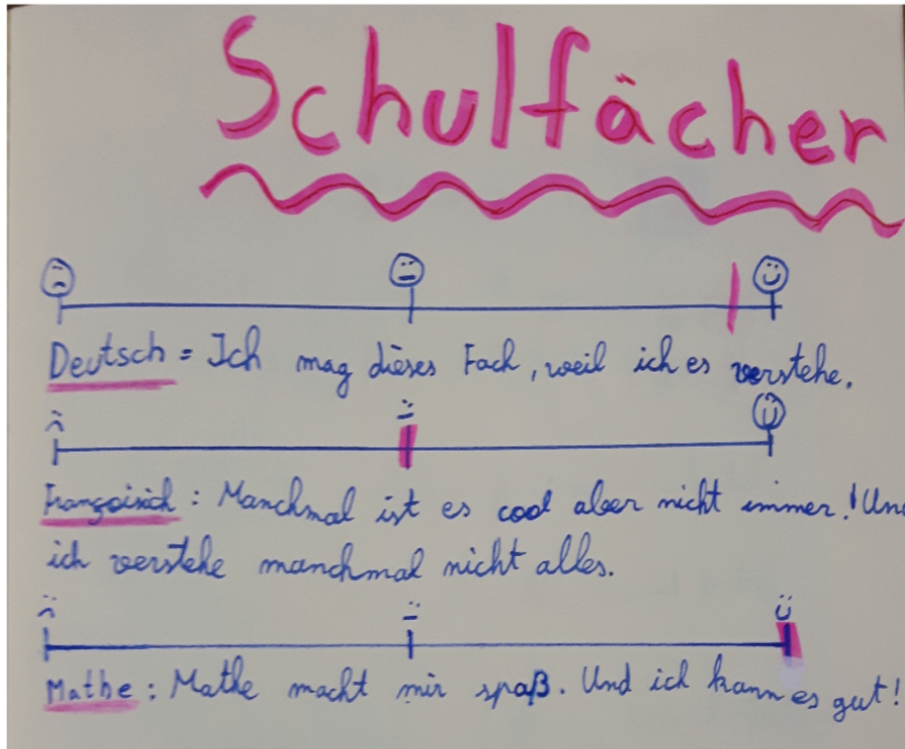 Schulfächer
Deutsch = Ich mag dieses Fach, weil ich es verstehe.
Französisch : Manchmal ist es cool aber nicht immer! Und
ich verstehe manchmal nicht alles.
Mathe : Mathe macht mir spaß. Und ich kann es gut!